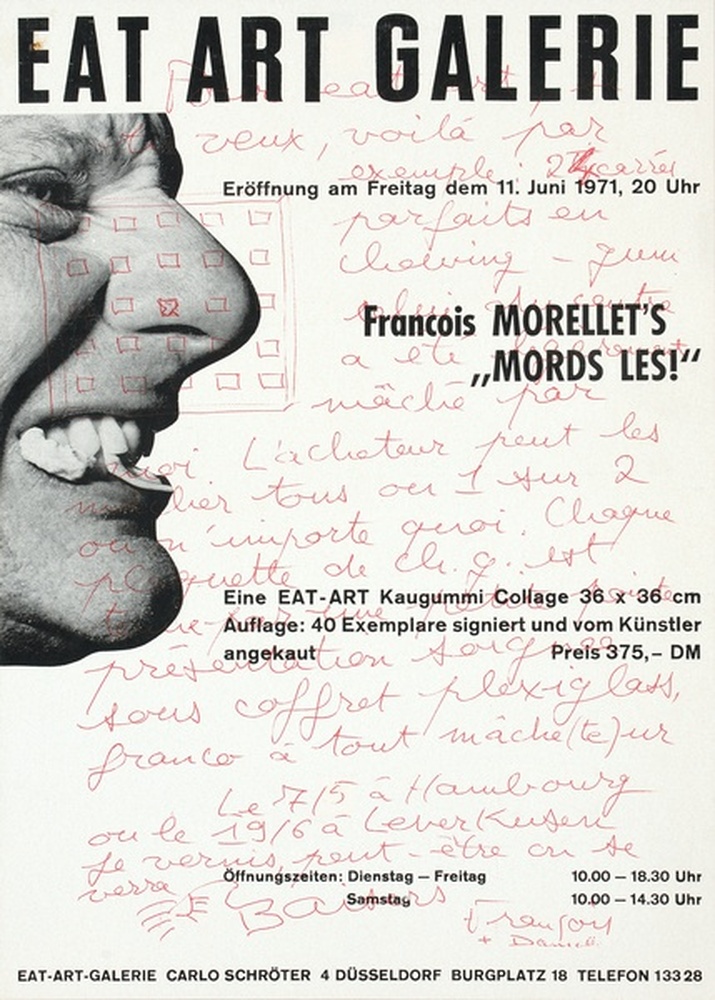 EAT ART GALERIE
Pour eat art, je
te veux, voilà par
exemple : 24 carrés
Eröffnung am Freitag dem 11. Juni 1971, 20 Uhr
parfaits en
chewing - gum
celui du centre
Francois MORELLET'S
a été
„MORDS LES!“
mâché par
moi L'acheteur peut les
mâcher tous ou 1 sur 2
ou n'importe quoi. Chaque
plaquette de ch. g. est
Eine EAT-ART Kaugummi Collage 36 x 36 cm
par une petite pointe
Auflage: 40 Exemplare signiert und vom Künstler
angekaut Preis 375,– DM
présentation soignée
sous coffret plexiglass,
franco à tout mâche(te)ur
Le 7/5 à Hambourg
ou le 19/6 à LeverKusen
Je vernis, peut-être on se
Öffnungszeiten: Dienstag – Freitag 10.00 – 18.30 Uhr
verra
Samstag 10.00 – 14.30 Uhr
Baisers
François
+ Danielle
EAT-ART-GALERIE CARLO SCHRÖTER 4 DÜSSELDORF BURGPLATZ 18 TELEFON 133 28